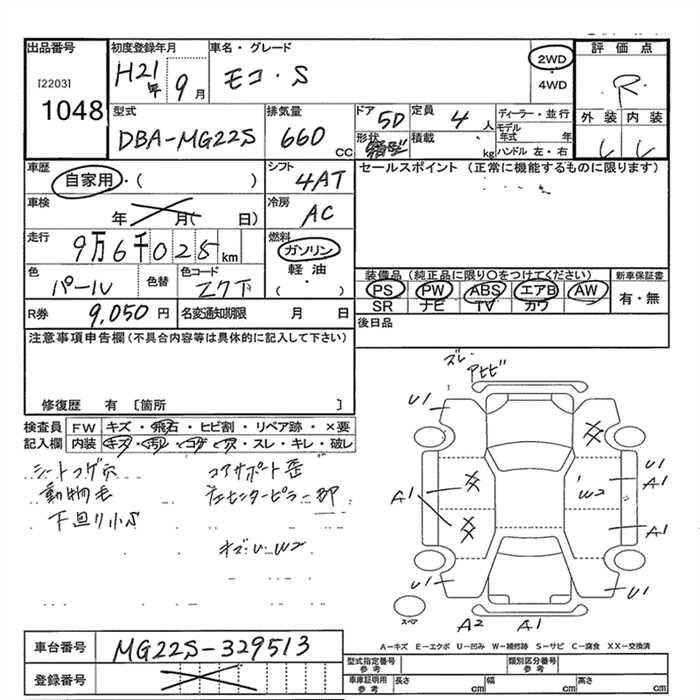 出品番号
[2203]
1048
初度登録年月
H21年 9月
車名・グレード
モコ・S
2WD
・
4WD
評価点
R
外装 内装
型式
DBA-MG22S
排気量
660 CC
ドア
5D
形状
箱型
定員
4 人
積載
kg
ディーラー・並行
モデル年式 年
ハンドル 左・右
車歴
自家用・( )
シフト
4AT
セールスポイント (正常に機能するものに限ります)
エアB
車検
年 月( 日)
冷房
AC
走行
9万6千025km
燃料
ガソリン
軽油
( )
色
パール
色替
色コード
ZCT
装備品 (純正品に限り○をつけてください)
PS PW ABS エアB AW
SR ナビ TV カワ
新車保証書
有・無
R券
9,050 円
名変通知期限 月 日
後日品
注意事項申告欄(不具合内容等は具体的に記入して下さい)
修復歴 有 [箇所 ]
検査員
記入欄
FW キズ・飛石・ヒビ割・リペア跡・×要
内装 キズ・汚レ・コゲ・穴・スレ・キレ・破レ
シートコゲ穴
動物毛
下廻り小S
コアサポート歪
左センターピラー部
キズ・U・W2
ズレ
アセビ
U1
A1
XX
XX
XX
W2
U1
A1
A1
U1
U1
A2 A1
スペア
A-キズ E-エクボ U-凹み W-補修跡 S-サビ C-腐食 XX-交換済
車台番号
MG22S-329513
登録番号
型式指定番号
参考
類別区分番号
参考
車庫証明用
参考
長さ cm
幅 cm
高さ cm